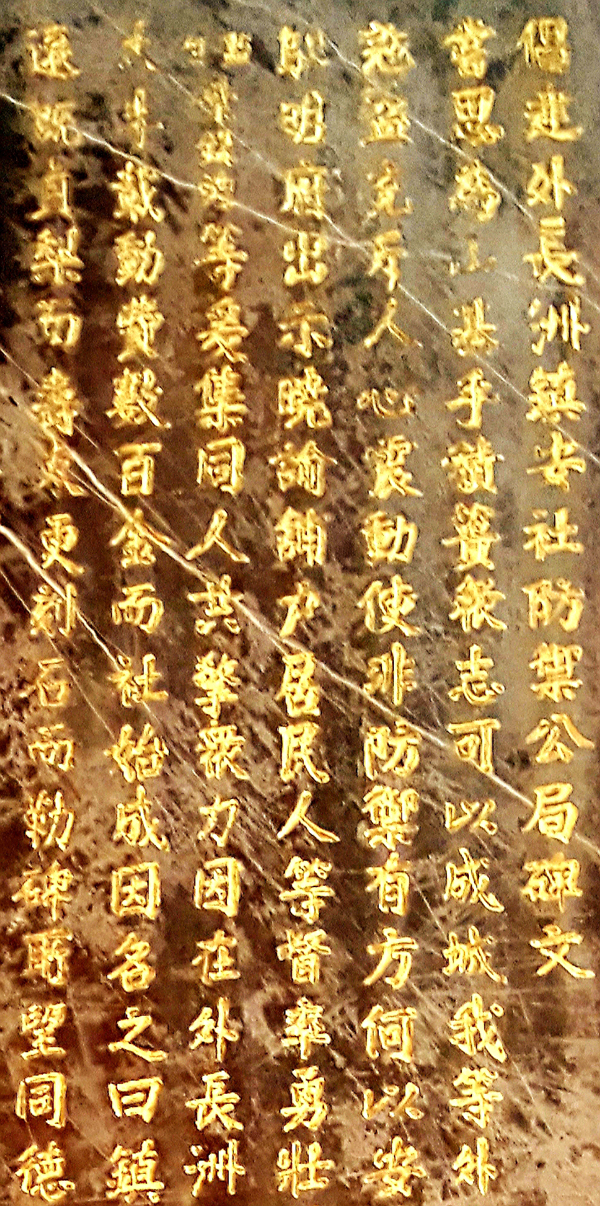 倡建外長洲鎮安社防禦公局碑文
嘗思為山基乎簣眾志可以成城我等外
盜充斥人心震動使非防禦有方何以安
明府出示曉諭舖户居民人等督率勇壯
等爰集同人共擎眾力因在外長洲
載動費數百金而社始成因名之曰鎮
貞而壽更刻石而勒碑所望同德